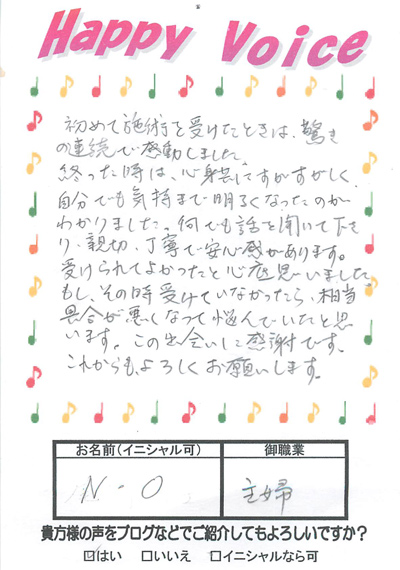 Happy Voice
初めて施術を受けたときは、驚き
の連続で感動しました。
終った時は、心身共にすがすがしく、
自分でも気持まで明るくなったのが
わかりました。何でも話を聞いて下さ
り、親切、丁寧で安心感があります。
受けられてよかったと心底思いました。
もし、その時受けていなかったら、相当
具合が悪くなって悩んでいたと思
います。この出会いに感謝です。
これからもよろしくお願いします。
お名前(イニシャル可) 御職業
N-O 主婦
貴方様の声をブログなどでご紹介してもよろしいですか？
☑はい □いいえ □イニシャルなら可